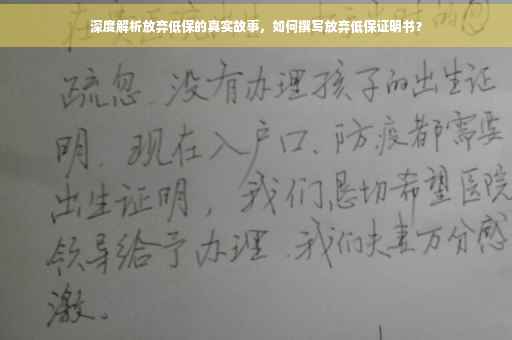 深度解析放弃低保的真实故事，如何撰写放弃低保证明书？
疏忽、没有办理孩子的出生证
明、现在入户口、防疫都需要
出生证明，我们恳切希望医院
领导给予办理、我们夫妻万分感
激。